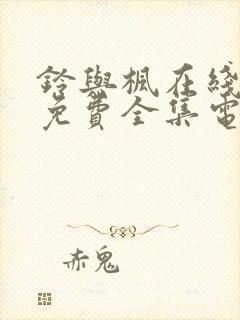 鈴與楓在綫
免費全集電
赤鬼